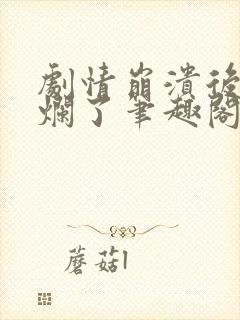 劇情崩潰後
爛了筆趣閣
蘑菇l